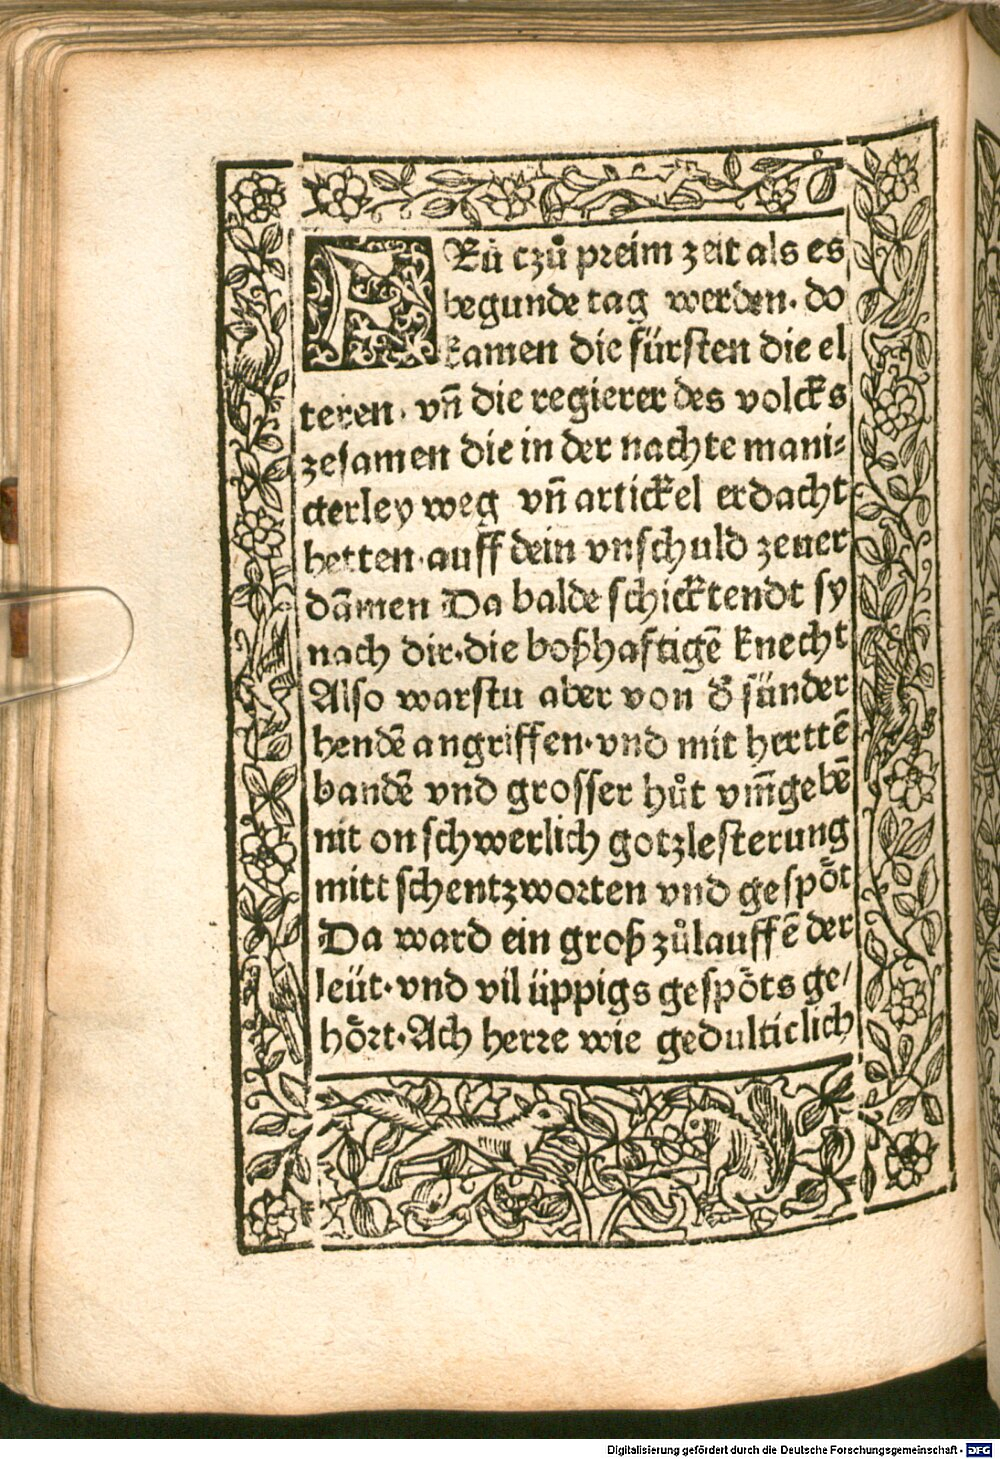 FRü czů preim zeit als es
begunde tag werden. do
kamen die fürsten die el
teren. vn̄ die regierer des volcks
zesamen die in der nachte mani-
cterley weg vn̄ artickel erdacht
hetten. auff dein vnschuld zeuer
dāmen Da balde schicktendt sy
nach dir. die boßhaftigē knecht
Also warstu aber von d̄ sünder
hendē angriffen. vnd mit herttē
bandē vnd grosser hůt vm̄gebē
nit on schwerlich gotzlesterung
mitt schentzworten vnd gespöt
Da ward ein groß zůlauffē der
leüt. vnd vil üppigs gespöts ge/
hört. Ach herre wie gedulticlich
Digitalisierung gefördert durch die Deutsche Forschungsgemeinschaft - DFG